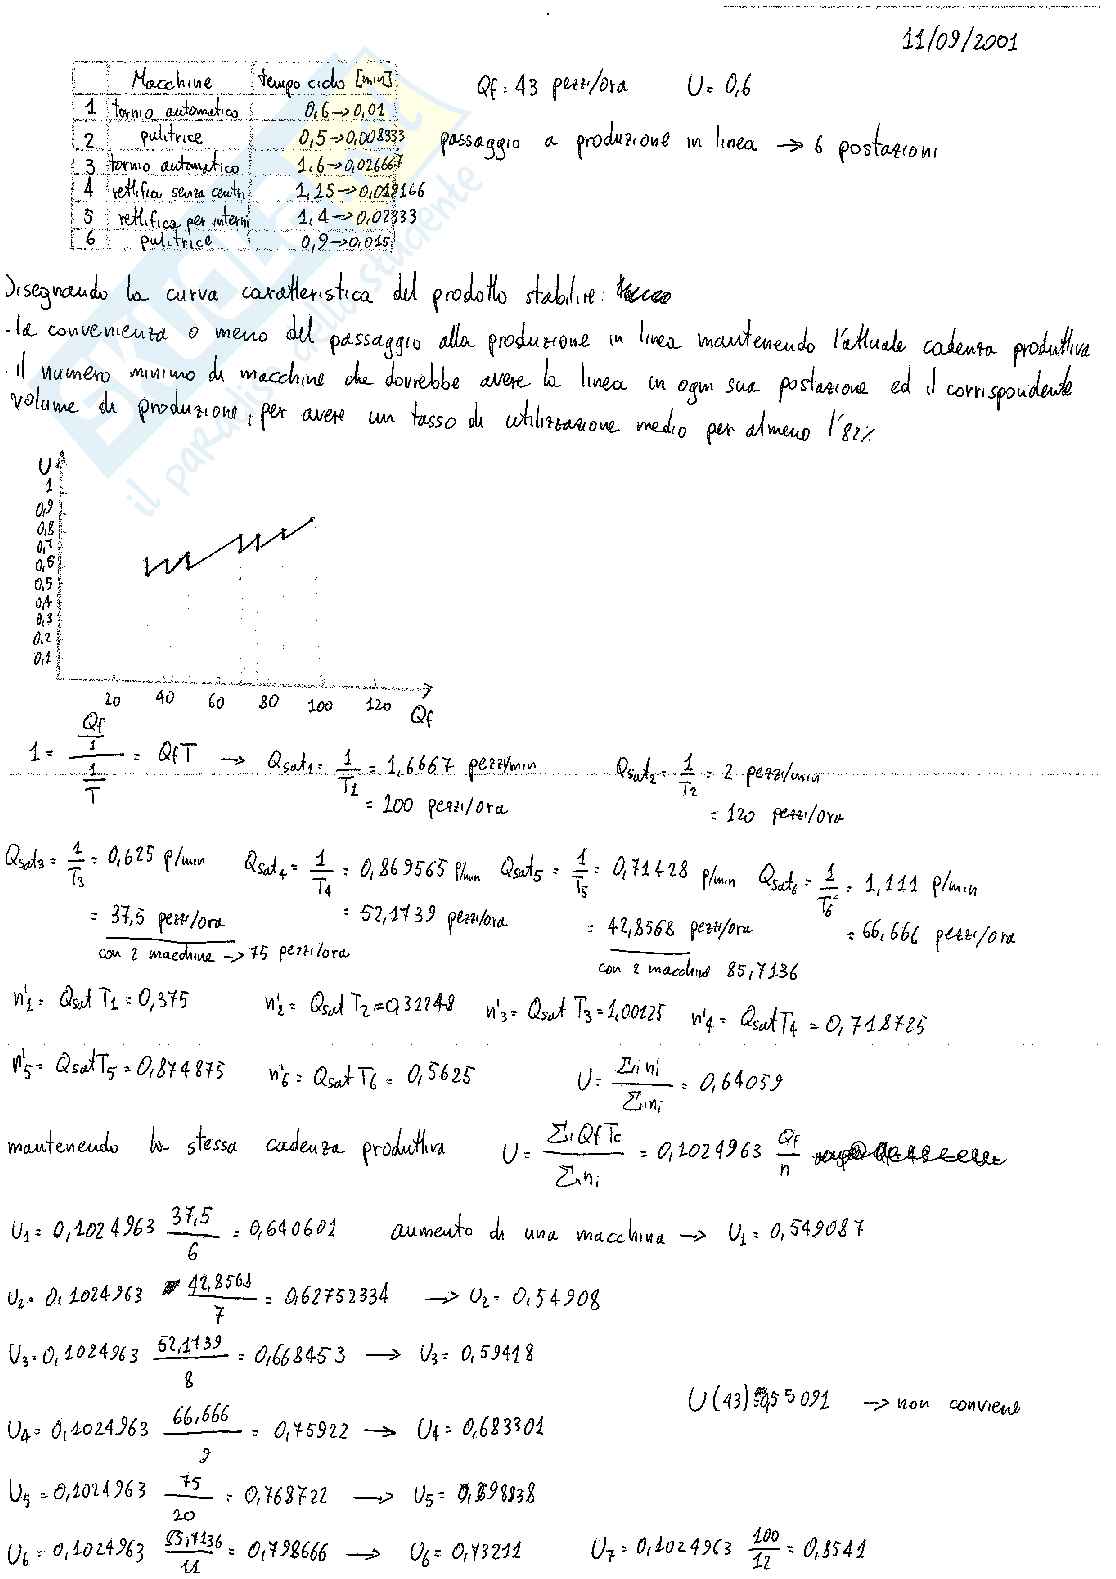 11/09/2001
Macchine tempo ciclo [min]
1 tornio automatico 0,6→0,01
2 pulitrice 0,5→0,008333
3 tornio automatico 1,6→0,026667
4 rettifica senza centri 1,15→0,019166
5 rettifica per interni 1,4→0,02333
6 pulitrice 0,9→0,015
Qf = 43 pezzi/ora U = 0,6
passaggio a produzione in linea → 6 postazioni
Disegnando la curva caratteristica del prodotto stabilire:
- la convenienza o meno del passaggio alla produzione in linea mantenendo l'attuale cadenza produttiva
- il numero minimo di macchine che dovrebbe avere la linea in ogni sua postazione ed il corrispondente
volume di produzione, per avere un tasso di utilizzazione medio per almeno l'82%
il paradiso dello studente
U
1
0,9
0,8
0,7
0,6
0,5
0,4
0,3
0,2
0,1
20 40 60 80 100 120 Qf
1 = Qf/1 / 1/T = QfT → Qsat1 = 1/T1 = 1,6667 pezzi/min
= 100 pezzi/ora
Qsat2 = 1/T2 = 2 pezzi/min
= 120 pezzi/ora
Qsat3 = 1/T3 = 0,625 p/min Qsat4 = 1/T4 = 0,869565 p/min Qsat5 = 1/T5 = 0,71428 p/min Qsat6 = 1/T6 = 1,111 p/min
= 37,5 pezzi/ora = 52,1739 pezzi/ora = 42,8568 pezzi/ora = 66,666 pezzi/ora
con 2 macchine → 75 pezzi/ora con 2 macchine 85,7136
n'1 = Qsat T1 = 0,375 n'2 = Qsat T2 = 0,31248 n'3 = Qsat T3 = 1,00125 n'4 = Qsat T4 = 0,718725
n'5 = Qsat T5 = 0,874875 n'6 = Qsat T6 = 0,5625 U = Σi n'i / Σi ni = 0,64059
mantenendo la stessa cadenza produttiva U = Σi Qf Tc / Σi ni = 0,1024963 Qf/n
U1 = 0,1024963 37,5/6 = 0,640601 aumento di una macchina → U1 = 0,549087
U2 = 0,1024963 42,8568/7 = 0,62752334 → U2 = 0,54908
U3 = 0,1024963 52,1739/8 = 0,668453 → U3 = 0,59418
U(43) = 0,55091 → non conviene
U4 = 0,1024963 66,666/9 = 0,75922 → U4 = 0,683301
U5 = 0,1024963 75/10 = 0,768722 → U5 = 0,698838
U6 = 0,1024963 85,7136/11 = 0,798666 → U6 = 0,73211 U7 = 0,1024963 100/12 = 0,8541